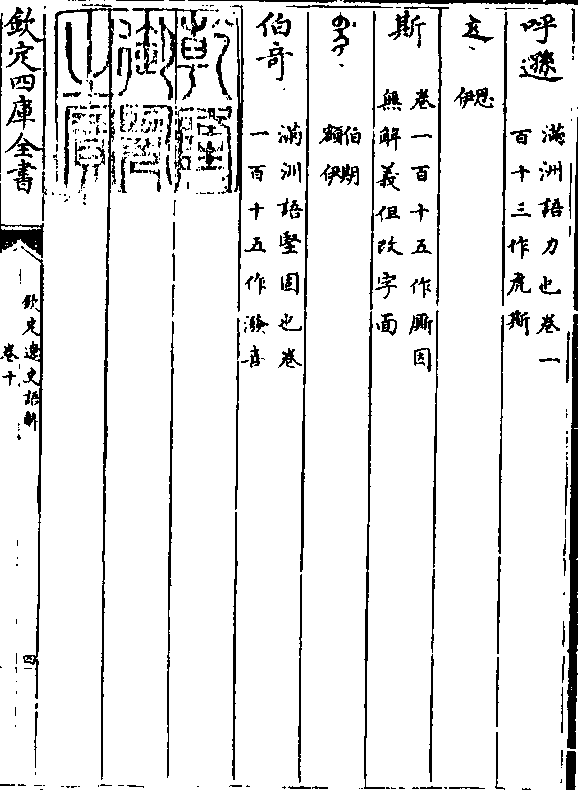 呼遜 滿洲語力也卷一
百十三作虎斯
ᠰᡳ 思
伊
斯 卷一百十五作厮因
無解義但改字面
ᠪᡝᡴᡳ 伯期
額伊
伯奇 滿洲語堅固也卷
一百十五作喜
乾隆
御覽
之寶
欽定四庫全書
欽定遼史語解
卷十
四